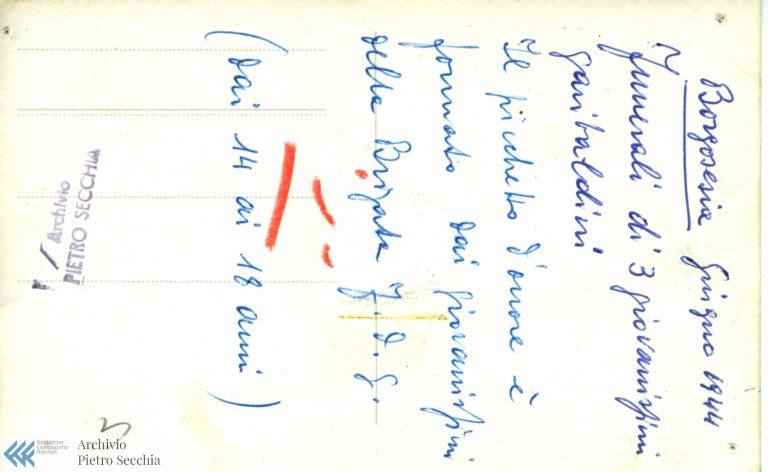 Borgosesia Giugno 1944
I funerali di 3 giovanissimi
garibaldini
Il picchetto d'onore è
formato dai giovanissimi
della Brigata F. d. G.
(dai 14 ai 18 anni)
Archivio
PIETRO SECCHIA
5
Fondazione
Giangiacomo
Feltrinelli
Archivio
Pietro Secchia